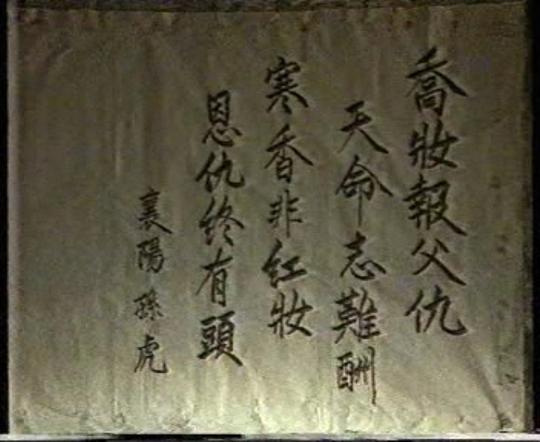 喬妝報父仇
天命志難酬
寒香非紅妝
恩仇终有頭
襄陽孫虎